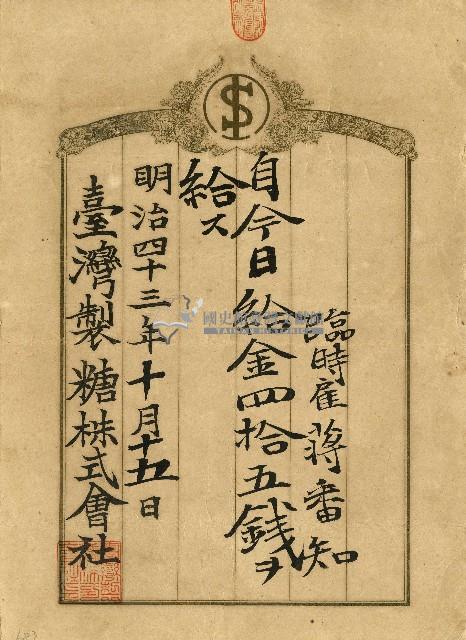 臨時雇蔣番知
自今日給金四拾五銭ヲ
給ス
明治四十三年十月十五日
臺灣製糖株式會社